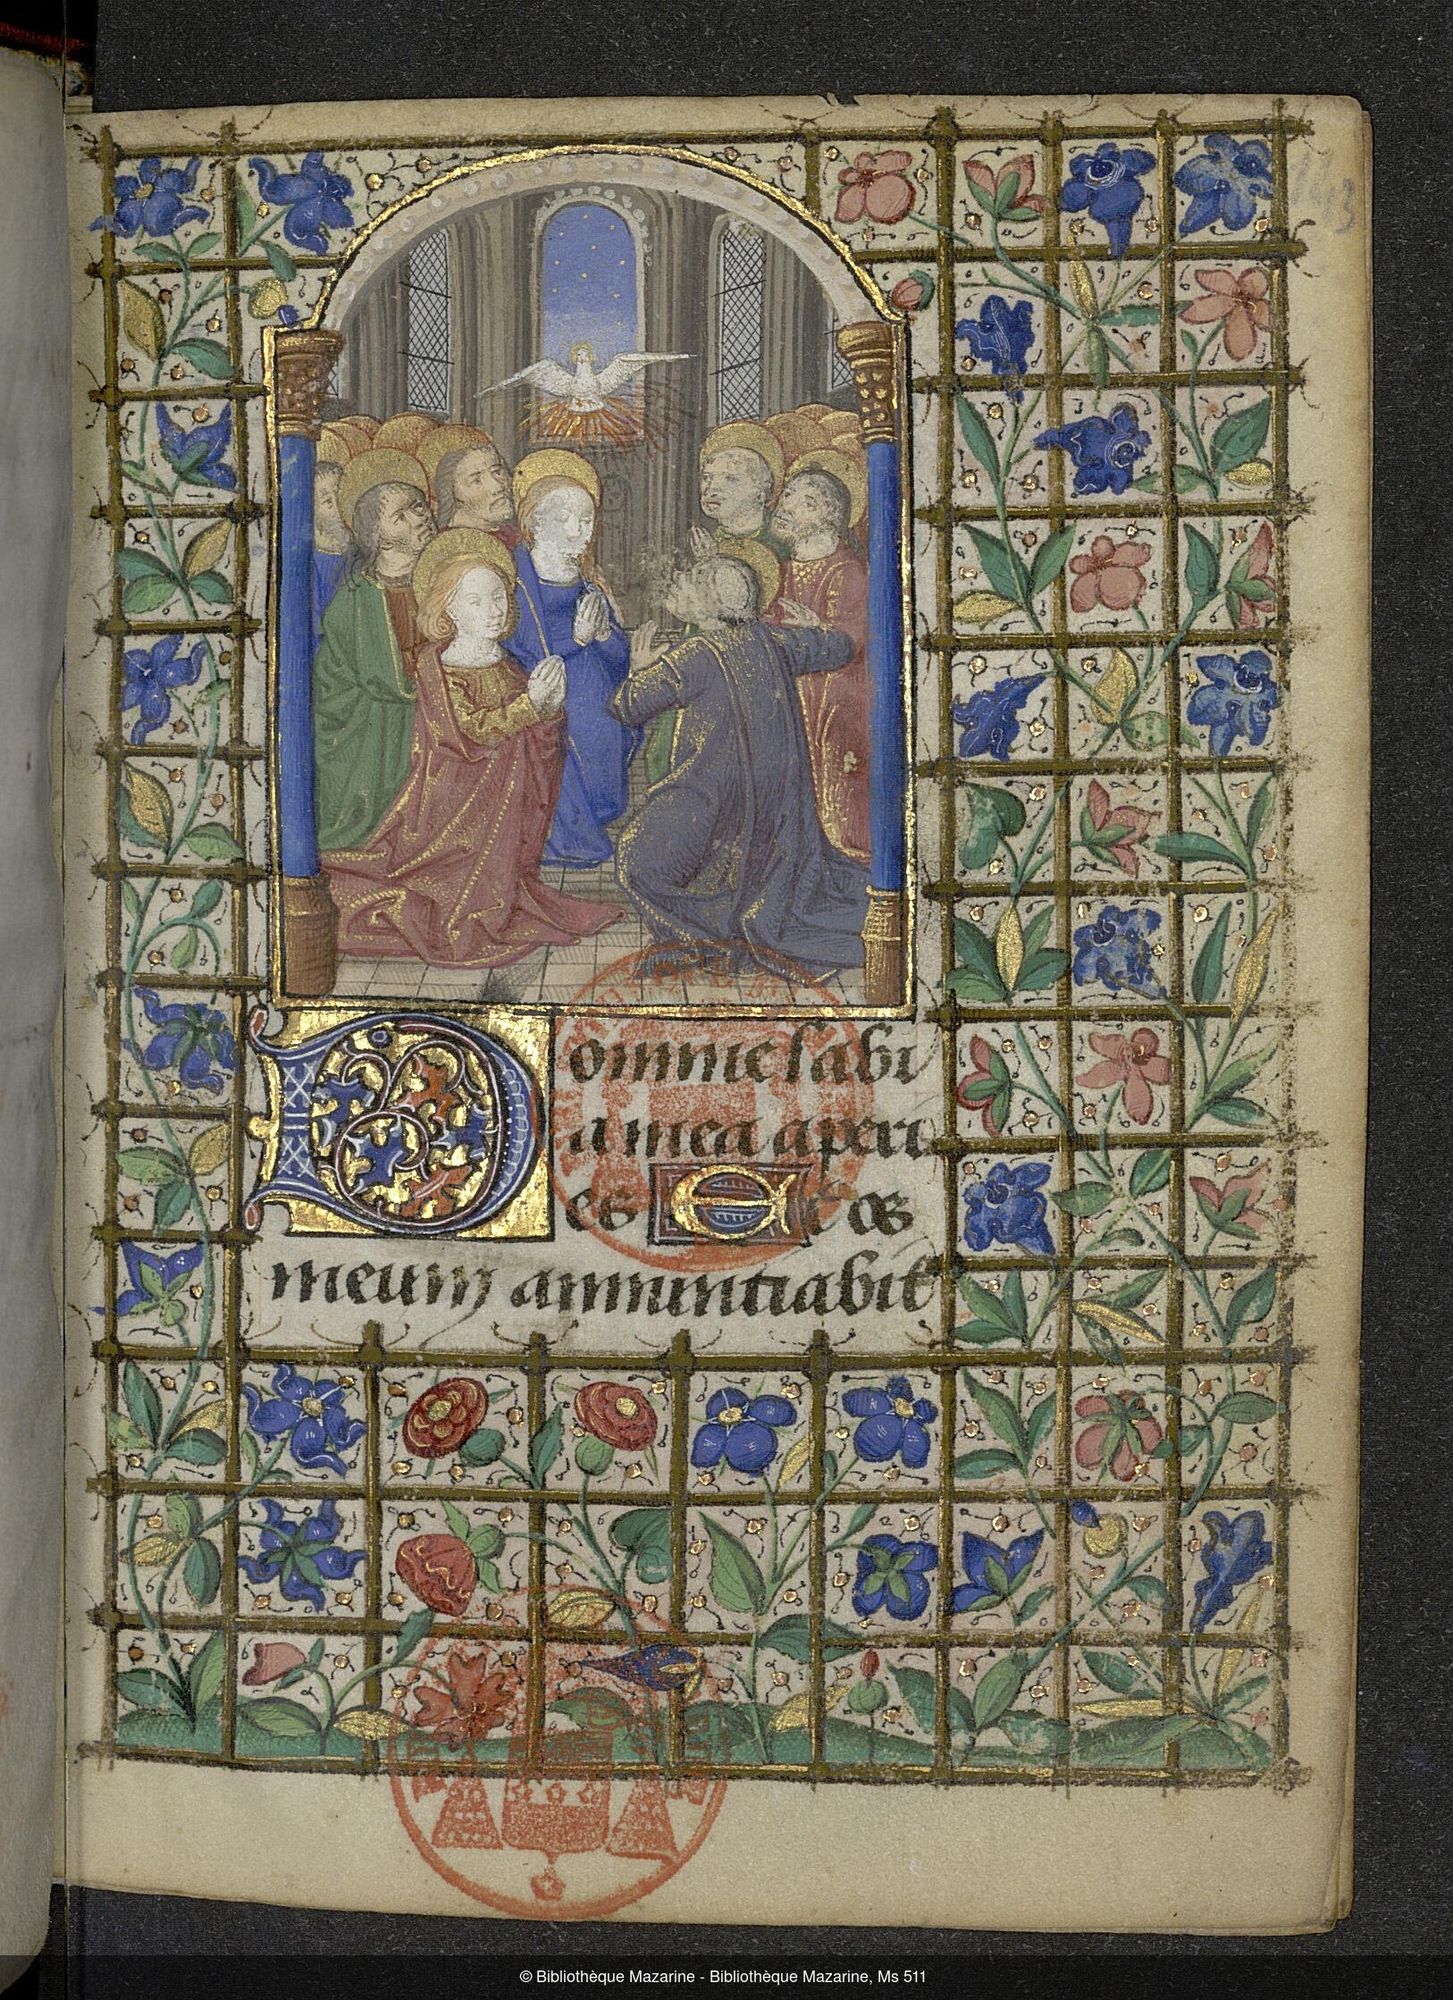 143
Domine labi
a mea aperi
es Et os
meum annuntiabit
© Bibliothèque Mazarine - Bibliothèque Mazarine, Ms 511